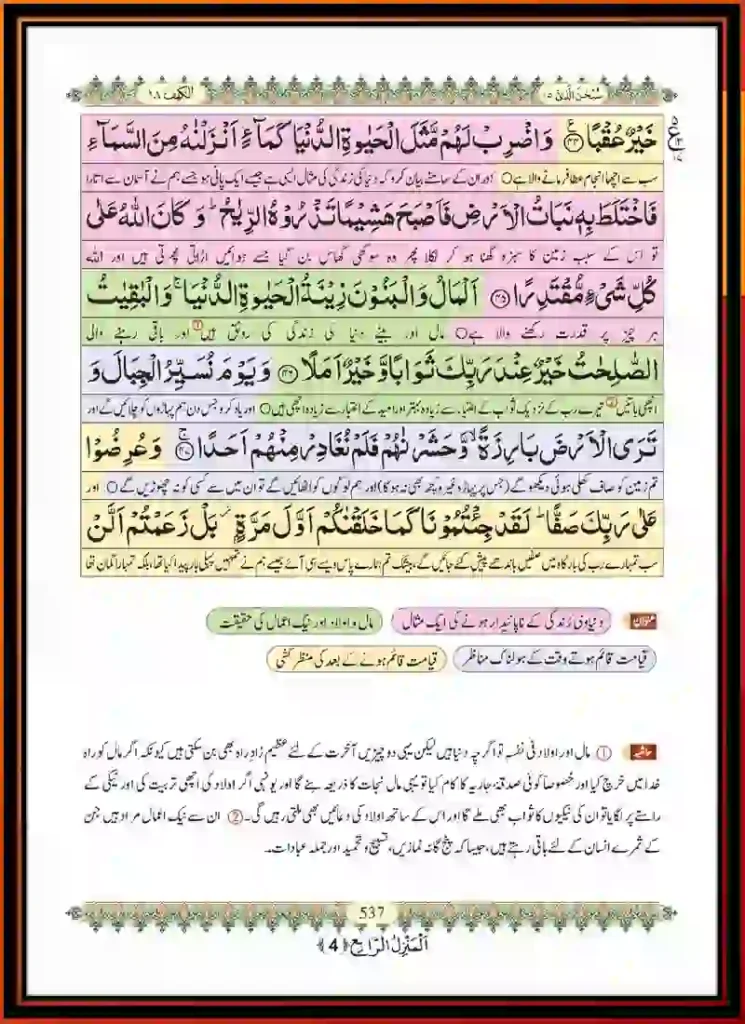 سُبْحٰنَ الَّذِیْۤ ۱۵
الكهف ۱۸
خَیْرٌ عُقْبًا۠ ﴿۴۴﴾ وَاضْرِبْ لَهُمْ مَّثَلَ الْحَیٰوةِ الدُّنْیَا كَمَآءٍ اَنْزَلْنٰهُ مِنَ السَّمَآءِ
سب سے اچھا انجام عطا فرمانے والا ہے ○ اور ان کے سامنے بیان کرو کہ دنیا کی زندگی کی مثال ایسی ہے جیسے ایک پانی ہو جسے ہم نے آسمان سے اتارا
فَاخْتَلَطَ بِهٖ نَبَاتُ الْاَرْضِ فَاَصْبَحَ هَشِیْمًا تَذْرُوْهُ الرِّیٰحُ ؕ وَ كَانَ اللّٰهُ عَلٰى
تو اس کے سبب زمین کا سبزہ گھنا ہو کر نکلا پھر وہ سوکھی گھاس بن گیا جسے ہوائیں اڑاتی پھرتی ہیں اور اللہ
كُلِّ شَیْءٍ مُّقْتَدِرًا ﴿۴۵﴾ اَلْمَالُ وَ الْبَنُوْنَ زِیْنَةُ الْحَیٰوةِ الدُّنْیَا ۚ وَ الْبٰقِیٰتُ
ہر چیز پر قدرت رکھنے والا ہے ○ مال اور بیٹے دنیا کی زندگی کی رونق ہیں ① اور باقی رہنے والی
الصّٰلِحٰتُ خَیْرٌ عِنْدَ رَبِّكَ ثَوَابًا وَّ خَیْرٌ اَمَلًا ﴿۴۶﴾ وَ یَوْمَ نُسَیِّرُ الْجِبَالَ وَ
اچھی باتیں ② تیرے رب کے نزدیک ثواب کے اعتبار سے زیادہ بہتر اور امید کے اعتبار سے زیادہ اچھی ہیں ○ اور یاد کرو جس دن ہم پہاڑوں کو چلائیں گے اور
تَرَى الْاَرْضَ بَارِزَةً ۙ وَّ حَشَرْنٰهُمْ فَلَمْ نُغَادِرْ مِنْهُمْ اَحَدًا ﴿۴۷﴾ۚ وَ عُرِضُوْا
تم زمین کو صاف کھلی ہوئی دیکھو گے (جس پر پہاڑ وغیرہ کچھ بھی نہ ہوگا) اور ہم لوگوں کو اٹھائیں گے تو ان میں سے کسی کو نہ چھوڑیں گے ○ اور
عَلٰى رَبِّكَ صَفًّا ؕ لَقَدْ جِئْتُمُوْنَا كَمَا خَلَقْنٰكُمْ اَوَّلَ مَرَّةٍۭ ؗ بَلْ زَعَمْتُمْ اَلَّنْ
سب تمہارے رب کی بارگاہ میں صفیں باندھے پیش کئے جائیں گے، بیشک تم ہمارے پاس ویسے ہی آئے جیسے ہم نے تمہیں پہلی بار پیدا کیا تھا، بلکہ تمہارا گمان تھا
عنوان دنیاوی زندگی کے ناپائیدار ہونے کی ایک مثال مال و اولاد اور نیک اعمال کی حقیقت
قیامت قائم ہوتے وقت کے ہولناک مناظر قیامت قائم ہونے کے بعد کی منظر کشی
حاشیہ ① مال اور اولاد فی نفسہ تو اگرچہ دنیا ہیں لیکن یہی دو چیزیں آخرت کے لئے عظیم زادِ راہ بھی بن سکتی ہیں کیونکہ اگر مال کو راہ
خدا میں خرچ کیا اور خصوصاً کوئی صدقہ جاریہ کا کام کیا تو یہی مال نجات کا ذریعہ بنے گا اور یونہی اگر اولاد کی اچھی تربیت کی اور نیکی کے
راستے پر لگایا تو ان کی نیکیوں کا ثواب بھی ملے گا اور اس کے ساتھ اولاد کی دعائیں بھی ملتی رہیں گی۔ ② ان سے نیک اعمال مراد ہیں جن
کے ثمرے انسان کے لئے باقی رہتے ہیں، جیسا کہ پنج گانہ نمازیں، تسبیح و تحمید اور جملہ عبادات۔
537
اَلْمَنْزِلُ الرَّابِع ﴿4﴾